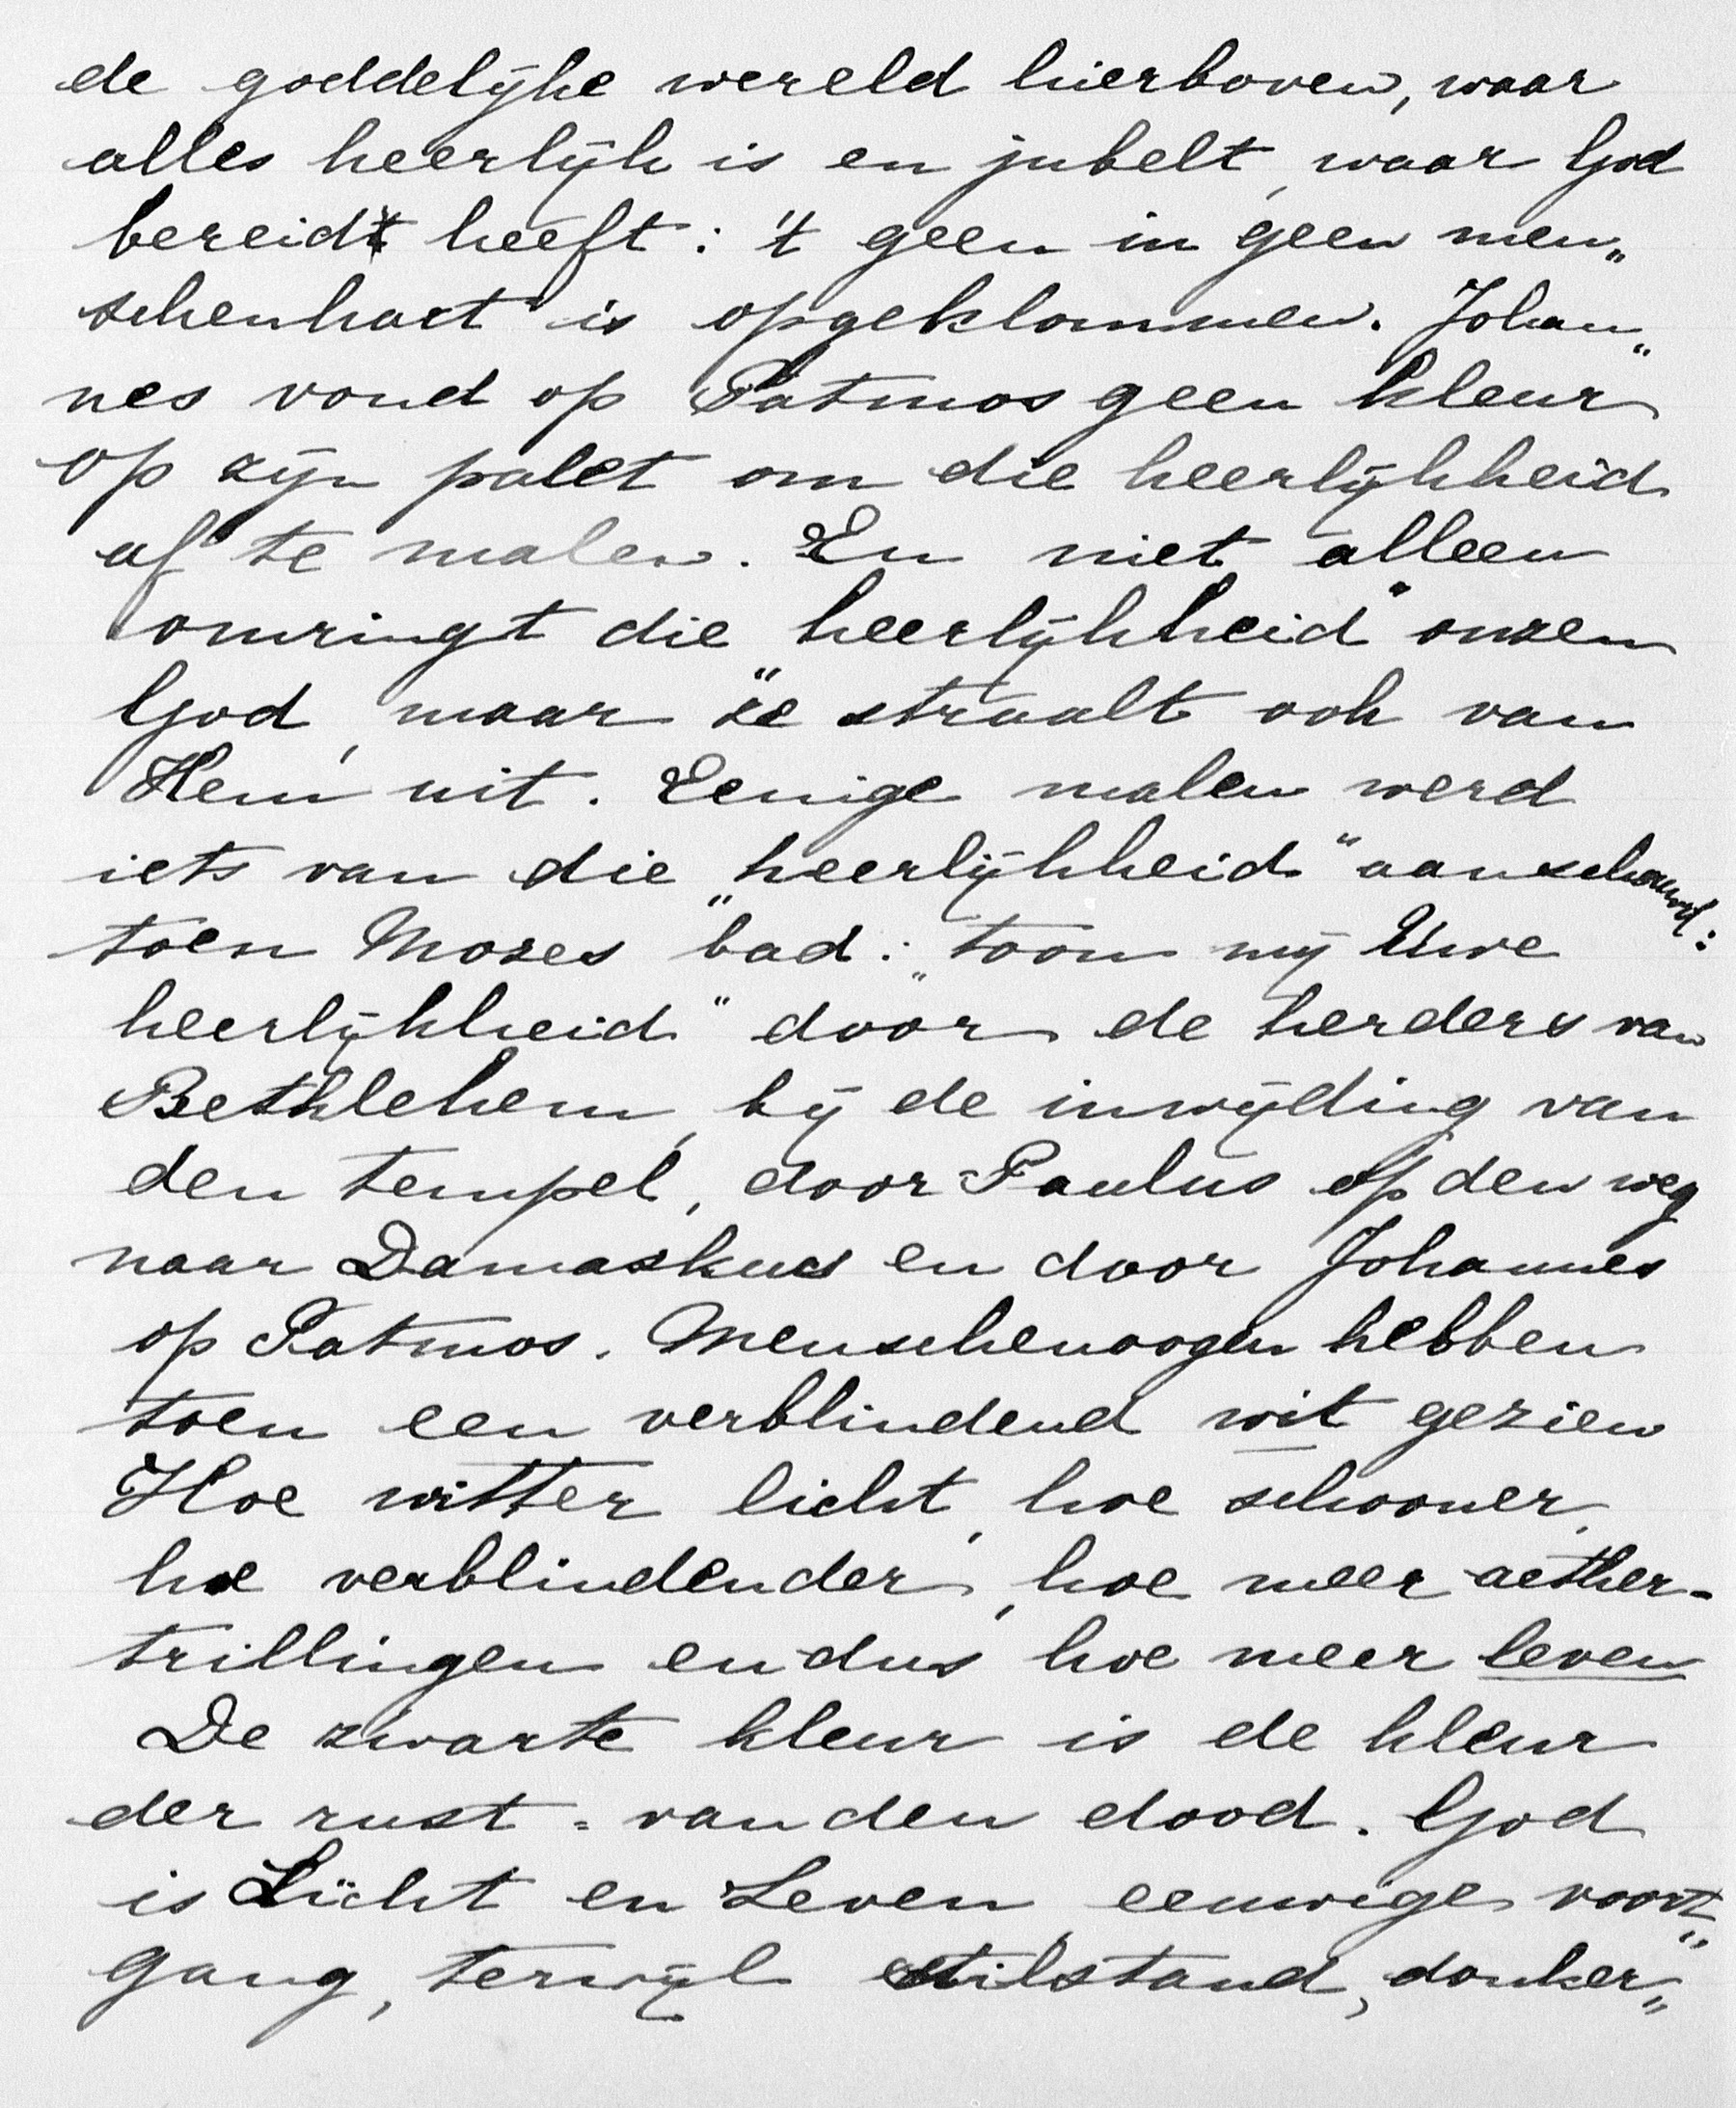 de goddelijke wereld hierboven, waar
alles heerlijk is en jubelt, waar God
bereidt heeft: 't geen in geen men„
schenhart is opgeklommen. Johan„
nes vond op Patmos geen kleur
op zijn palet om die heerlijkheid
af te malen. En niet alleen
omringt die „heerlijkheid" onzen
God, maar ze straalt ook van
Hem uit. Eenige malen werd
iets van die „heerlijkheid" aanschouwd:
toen Mozes bad: „toon mij Uwe
heerlijkheid" door de herders van
Bethlehem, bij de inwijding van
den tempel, door Paulus op den weg
naar Damaskus en door Johannes
op Patmos. Menschenoogen hebben
toen een verblindend wit gezien
Hoe witter licht, hoe schooner,
hoe verblindender, hoe meer aether-
trillingen en dus hoe meer leven
De zwarte kleur is de kleur
der rust = van den dood. God
is Licht en Leven, eeuwige voort„
gang, terwijl stilstand, donker„